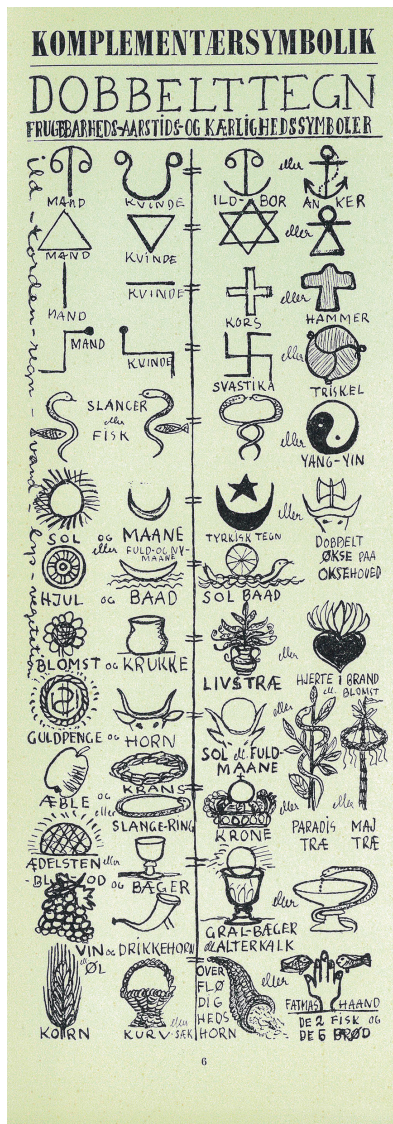 KOMPLEMENTÆRSYMBOLIK
DOBBELTTEGN
FRUGTBARHEDS-AARSTIDS-OG KÆRLIGHEDSSYMBOLER
ild - torden - regn - vand - lys - vegetation
MAND KVINDE ILD-BOR eller ANKER
MAND KVINDE eller
MAND KVINDE KORS eller HAMMER
MAND KVINDE SVASTIKA eller TRISKEL
SLANGER
eller
FISK
eller YANG-YIN
SOL OG MAANE TYRKISK TEGN eller DOBBELT
ØKSE PAA
OKSEHOVED
eller FULD-OG NY-
MAANE
HJUL OG BAAD SOL BAAD
BLOMST OG KRUKKE LIVSTRÆ eller HJERTE I BRAND
ell. BLOMST
GULDPENGE OG HORN SOL ell. FULD-
MAANE
eller PARADIS
TRÆ
eller MAJ
TRÆ
ÆBLE OG KRANS
eller SLANGE-RING KRONE eller
ÆDELSTEN eller
-BLOD OG BÆGER GRAL-BÆGER
ell. ALTERKALK
eller
VIN OG DRIKKEHORN
ell. ØL
KORN KURV eller SÆK OVER
FLØ
DIG
HEDS
HORN
eller FATMAS HAAND
DE 2 FISK OG
DE 5 BRØD
6